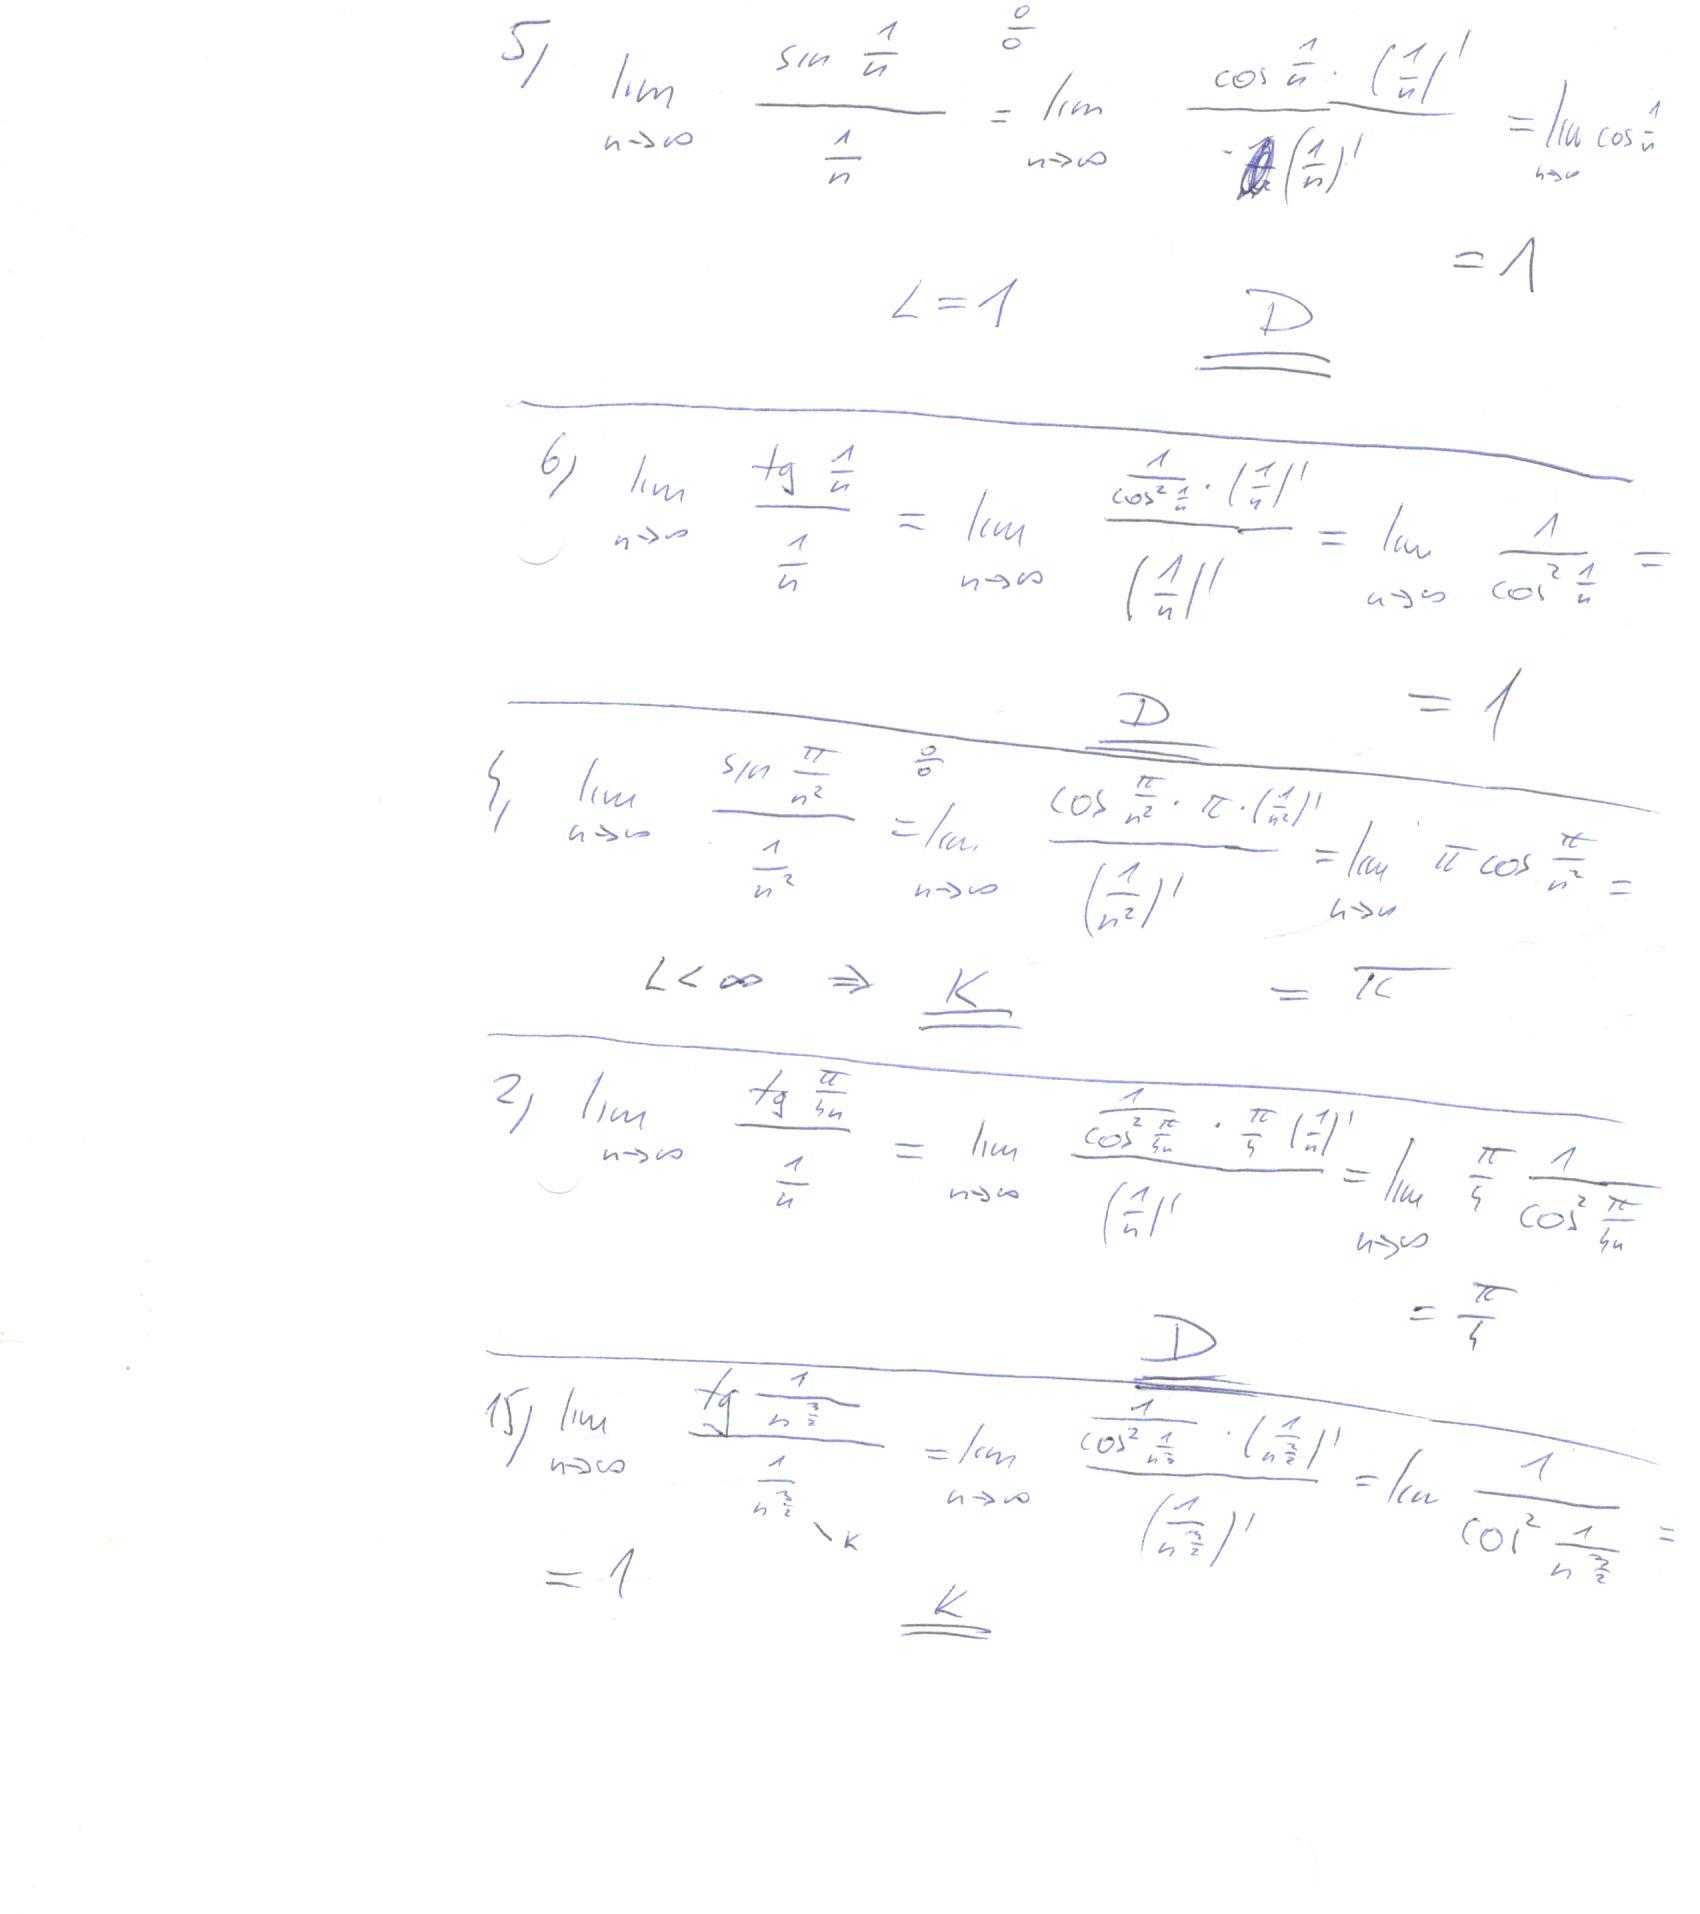 5) lim n→∞ sin 1/n / 1/n = 0/0 lim n→∞ cos 1/n · (1/n)' / (1/n)' = lim n→∞ cos 1/n
= 1
L = 1 D
6) lim n→∞ tg 1/n / 1/n = lim n→∞ 1/cos² 1/n · (1/n)' / (1/n)' = lim n→∞ 1/cos² 1/n =
D = 1
4) lim n→∞ sin π/n² / 1/n² = 0/0 lim n→∞ cos π/n² · π · (1/n²)' / (1/n²)' = lim π cos π/n² =
L < ∞ ⇒ K = π
2) lim n→∞ tg π/4n / 1/n = lim n→∞ 1/cos² π/4n · π/4 (1/n)' / (1/n)' = lim n→∞ π/4 1/cos² π/4n
= π/4
D
15) lim n→∞ tg 1/n^(3/2) / 1/n^(3/2) = lim n→∞ 1/cos² 1/n^(3/2) · (1/n^(3/2))' / (1/n^(3/2))' = lim 1/cos² 1/n^(3/2) =
K
= 1
K